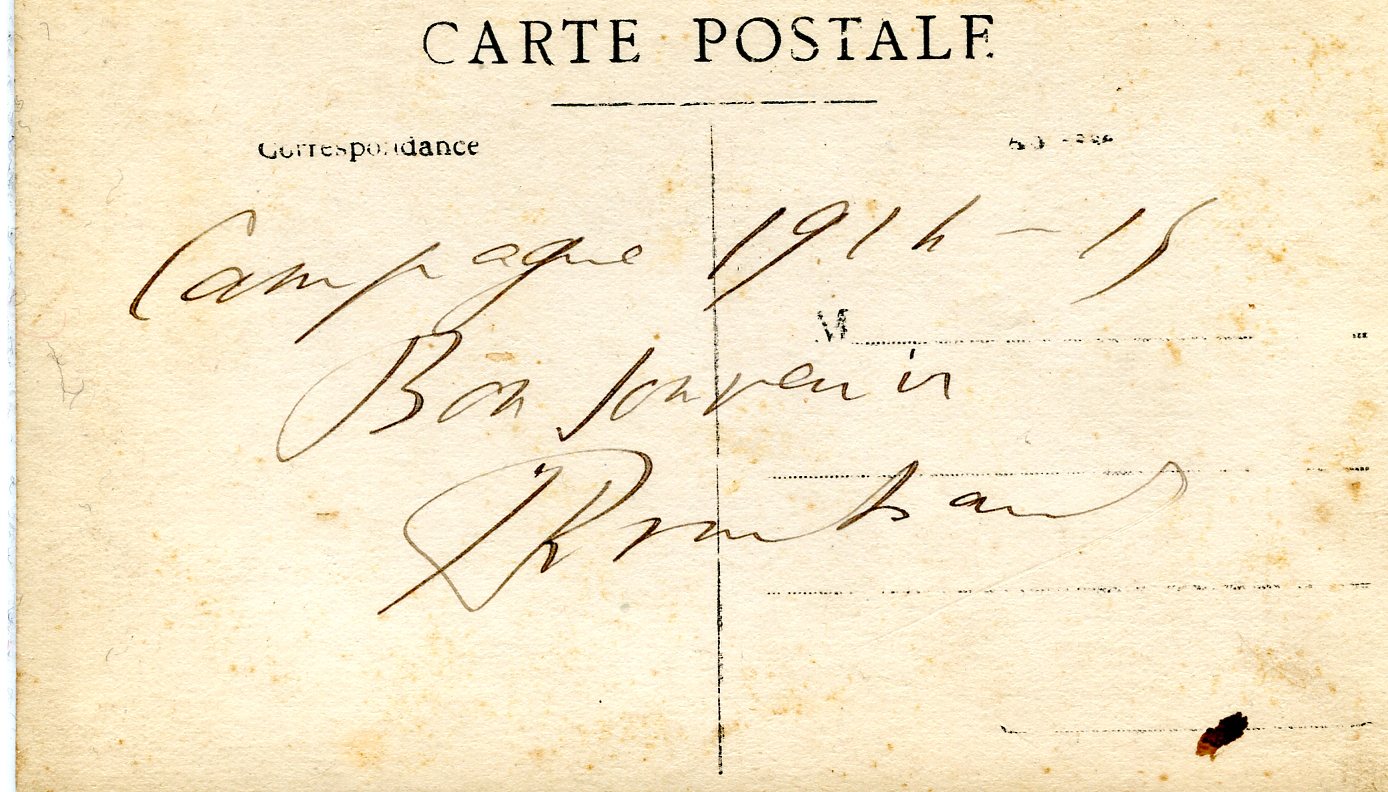 CARTE POSTALE
Correspondance
Campagne 1914-15
M
Bon souvenir